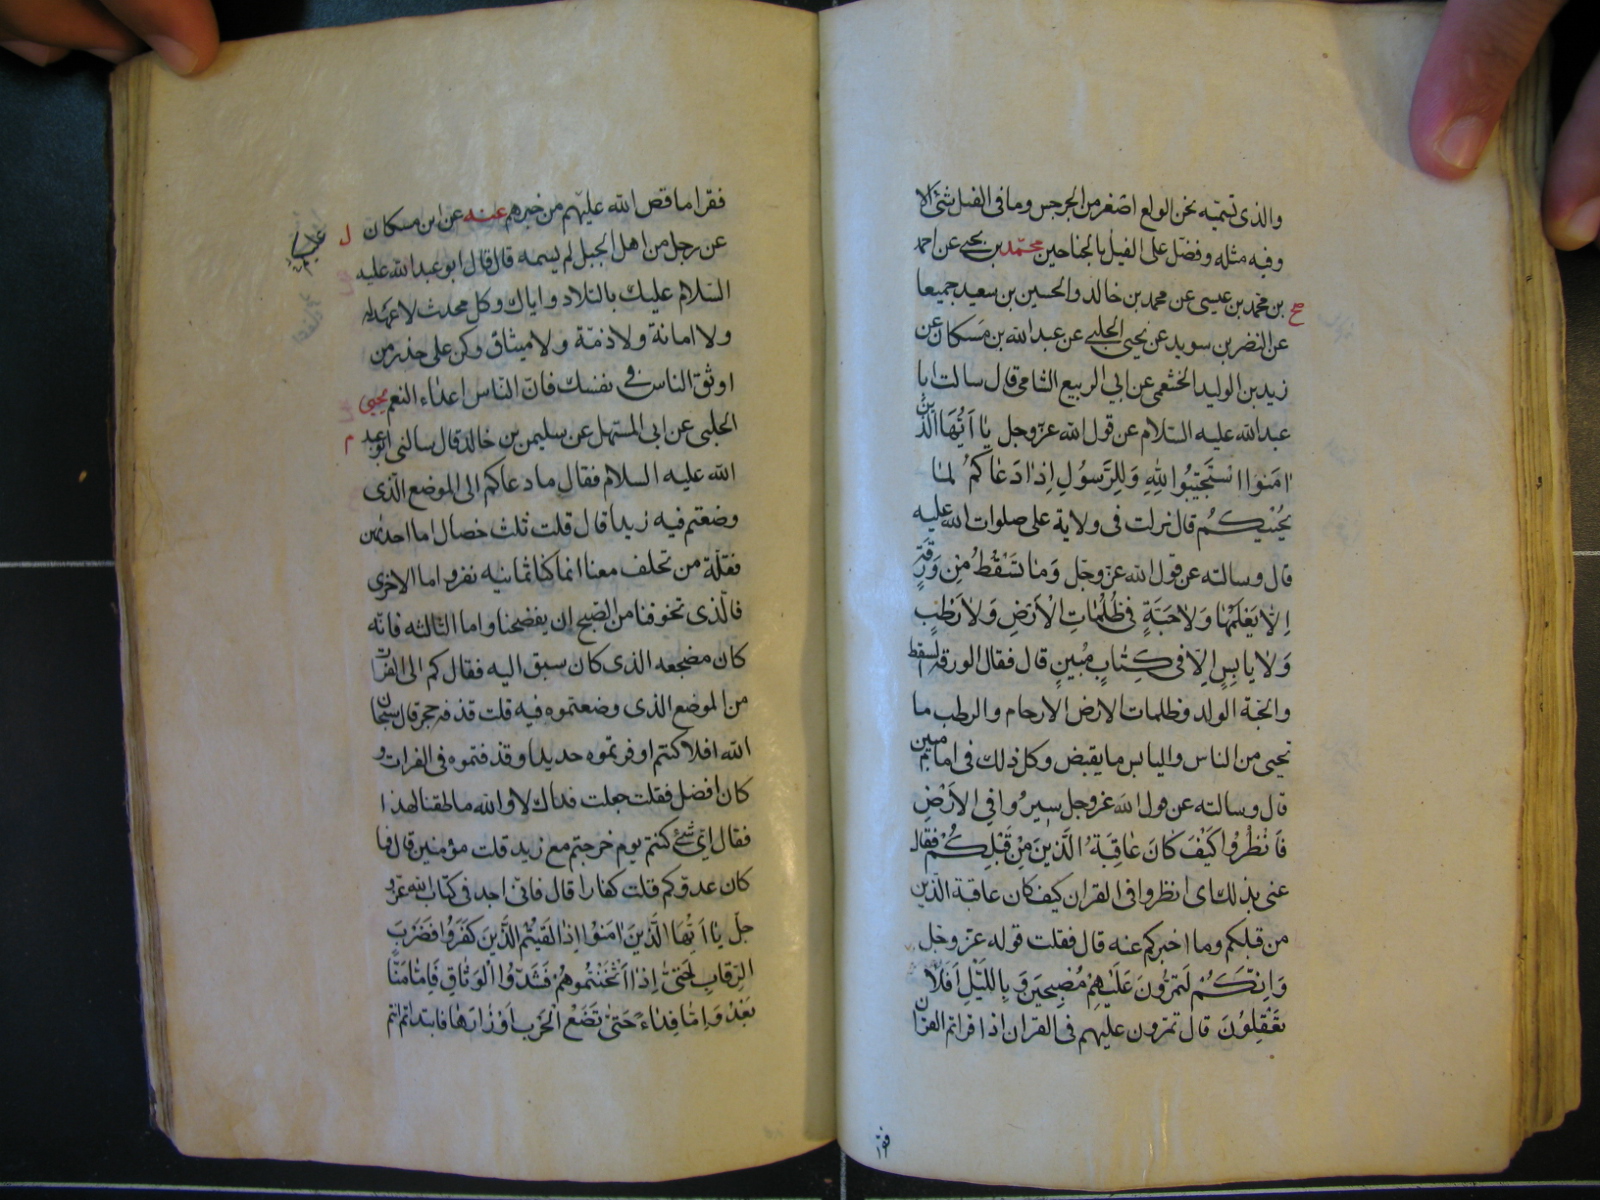 والذى تسميه نحن الولع اصغر من الجرجس وما فى الفيل شئ الا
وفيه مثله وفضل على الفيل بالجناحين محمد بن يحيى عن احمد
بن محمد بن عيسى عن محمد بن خالد والحسين بن سعيد جميعا
ح
عن النضر بن سويد عن يحيى الحلبى عن عبد الله بن مسكان عن
زيد بن الوليد الخثعمى عن ابى الربيع الشامى قال سالت ابا
عبد الله عليه السلام عن قول الله عز وجل يا اَيُّهَا الَّذينَ
امَنوُا اسْتَجيبُوا لِلّهِ وَلِلرَّسُولِ اِذا دَعاكُمْ لِما
يُحْييكُمْ قال نزلت فى ولاية على صلوات الله عليه
قال وسالته عن قول الله عز وجل وَما تَسْقُطُ مِنْ وَرَقَةٍ
اِلّا يَعْلَمُها وَلا حَبَّةٍ فى ظُلُماتِ الْاَرْضِ وَلا رَطْبٍ
وَلا يابِسٍ اِلّا فى كِتابٍ مُبينٍ قال فقال الورقة السقط
والحبة الولد وظلمات الارض الارحام والرطب ما
يحيى من الناس واليابس ما يقبض وكل ذلك فى امام مبين
قال وسالته عن قول الله عز وجل سيرُوا فِي الْاَرْضِ
فَانْظُرُوا كَيْفَ كانَ عاقِبَةُ الَّذينَ مِنْ قَبْلِكُمْ فقال
عنى بذلك اى انظروا فى القران كيف كان عاقبة الذين
من قبلكم وما اخبركم عنه قال فقلت قوله عز وجل
وَاِنَّكُمْ لَتَمُرُّونَ عَلَيْهِمْ مُصْبِحينَ وَبِاللَّيْلِ اَفَلا
تَعْقِلُونَ قال تمرون عليهم فى القران اذا قراتم القران
فقرا
فقرا ما قص الله عليهم من خبرهم عنه عن ابن مسكان
ل
عن رجل من اهل الجبل لم يسمه قال قال ابو عبد الله عليه
السلام عليك بالتلاد واياك وكل محدث لا عهد له
ولا امانة ولا ذمة ولا ميثاق وكن على حذر من
اوثق الناس فى نفسك فان الناس اعداء النعم يحيى
الحلبى عن ابى المستهل عن سليمن بن خالد قال سالنى ابو عبد
م
الله عليه السلام فقال ما دعاكم الى الموضع الذى
وضعتم فيه زيدا قال قلت ثلث خصال اما احديهن
فقلة من تخلف معنا انما كنا ثمانيه نفر واما الاخرى
فالذى تخوفنا من الصبح ان يفضحنا واما الثالثه فانه
كان مضجعه الذى كان سبق اليه فقال كم الى الفرات
من الموضع الذى وضعتموه فيه قلت قذفه حجر قال سبحان
الله افلا كنتم اوقرتموه حديدا وقذفتموه فى الفرات و
كان افضل فقلت جعلت فداك لا والله ما طقنا لهذا
فقال اى شئ كنتم يوم خرجتم مع زيد قلت مؤمنين قال فما
كان عدوكم قلت كفارا قال فانى اجد فى كتاب الله عز و
جل يا اَيُّهَا الَّذينَ امَنوُا اِذا لَقيتُمُ الَّذينَ كَفَرُوا فَضَرْبَ
الرِّقابِ حَتّى اِذا اَثْخَنْتُموُهُمْ فَشُدُّوا الْوَثاقَ فَاِمّا مَنًّا
بَعْدُ وَاِمّا فِداءً حَتّى تَضَعَ الْحَرْبُ اَوْزارَها فابتداتم انتم